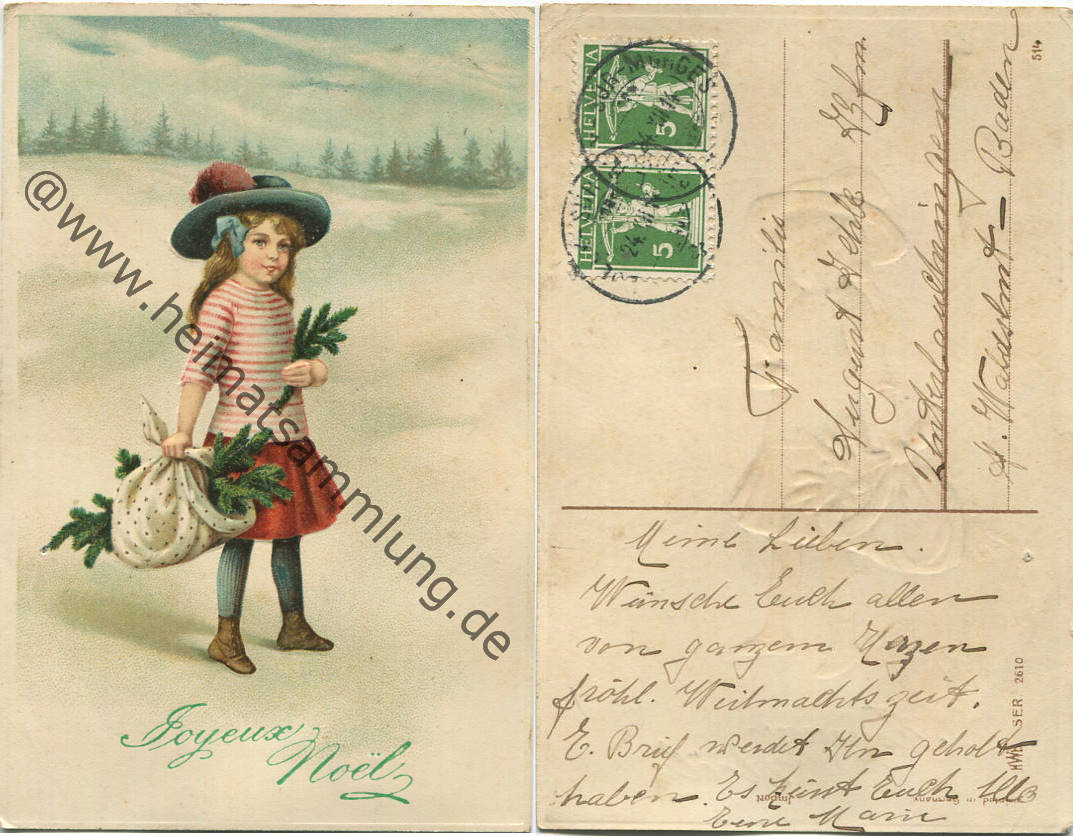 Joyeux
Noël
@www.heimatsammlung.de
HELVETIA
5
HELVETIA
5
514
Familie
August
Unterlauchringen
A. Waldshut - Baden
Meine Lieben.
Wünsche Euch allen
von ganzem Herzen
fröhl. Weihnachtszeit.
E. Brief werdet Ihr geholt
haben. Es Euch Alle
Eure Marie
SER 2610
Printed in Germany
Import